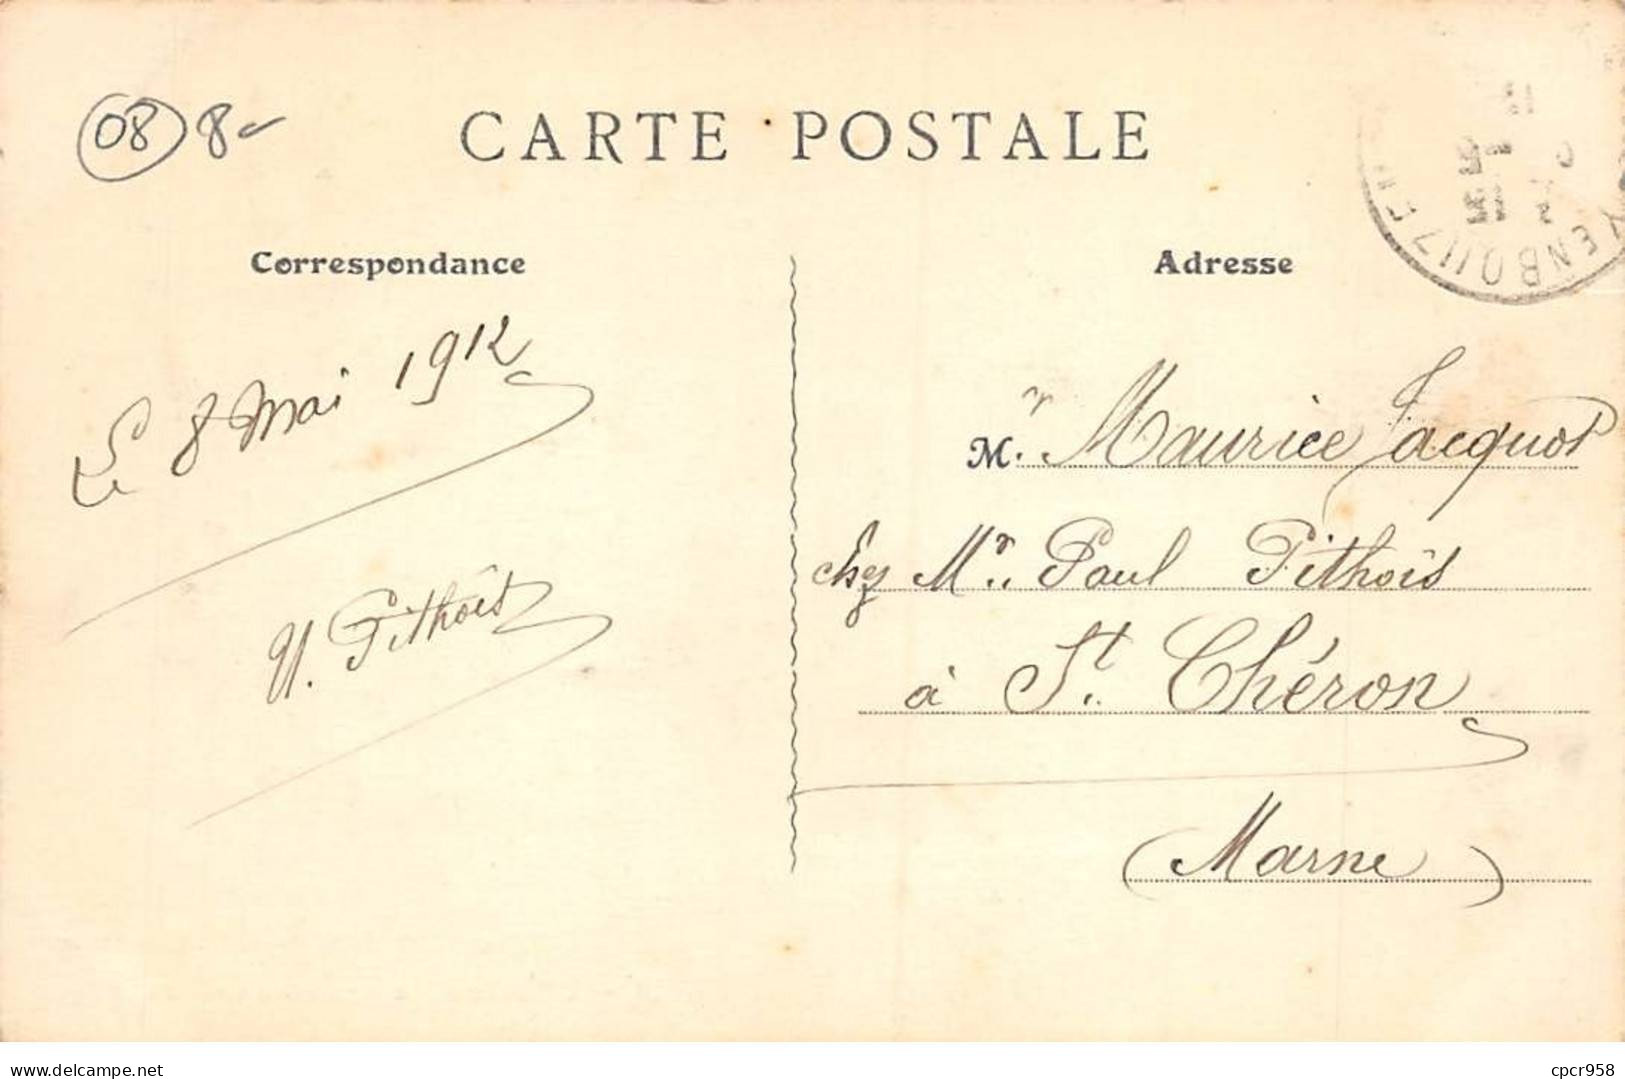 08 8-
CARTE POSTALE
Correspondance
Adresse
Le 8 Mai 1912
U. Pithois
M.r Maurice Jacquot
chez Mr. Paul Pithois
à St. Chéron
(Marne)
www.delcampe.net
cpcr958